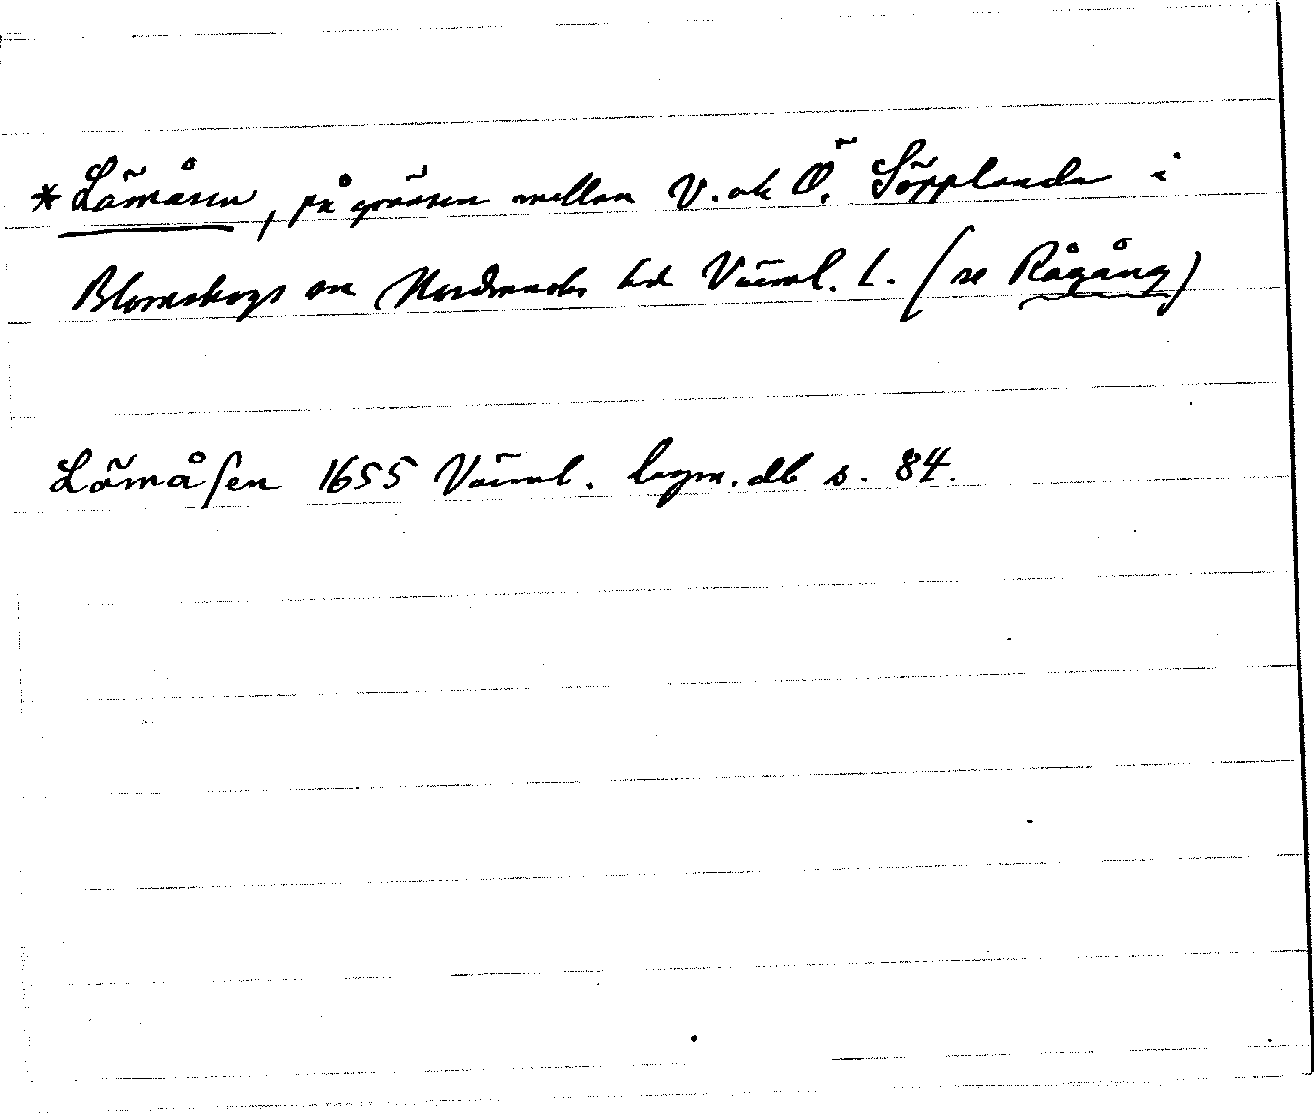 * Lämåsen, på gränsen mellan V. ok Ö. Söpplanda i
Blomskogs sn Nordmarks hd Värml. l. (se Rågång)
Lämåſen 1655 Värml. lagm. db s. 84.